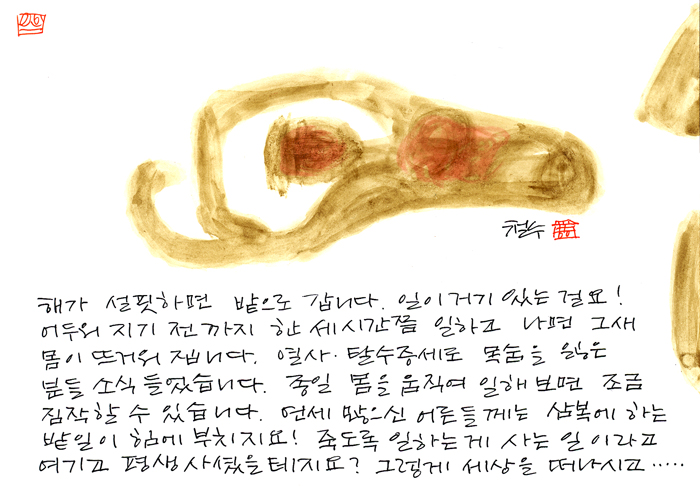 철수
해가 설핏하면 밭으로 갑니다. 일이 거기 있는 걸요!
어두워 지기 전까지 한 세시간쯤 일하고 나면 그새
몸이 뜨거워 집니다. 열사·탈수증세로 목숨을 잃은
분들 소식 들었습니다. 종일 몸을 움직여 일해 보면 조금
짐작할 수 있습니다. 연세 많으신 어른들께는 삼복에 하는
밭일이 힘에 부치지요! 죽도록 일하는게 사는 일이라고
여기고 평생 사셨을테지요? 그렇게 세상을 떠나시고·····